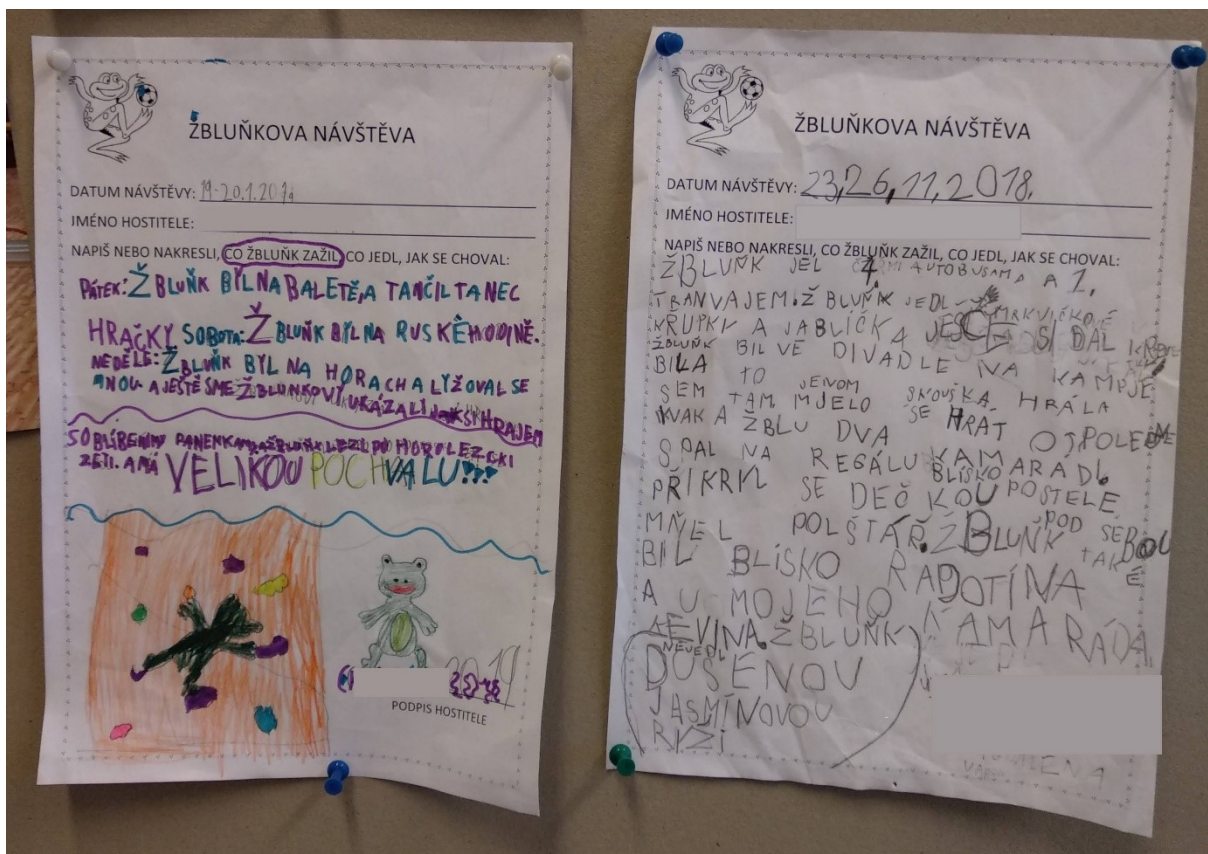 ŽBLUŇKOVA NÁVŠTĚVA
DATUM NÁVŠTĚVY: 19-20.1.201
JMÉNO HOSTITELE:
NAPIŠ NEBO NAKRESLI, CO ŽBLUŇK ZAŽIL, CO JEDL, JAK SE CHOVAL:
PÁTEK: ŽBLUŇK BYL NA BALETĚ, A TANČIL TANEC
HRAČKY SOBOTA: ŽBLUŇK BYL NA RUSKÉ HODINĚ.
NEDĚLE: ŽBLUŇK BYL NA HORACH A LYŽOVAL SE
MNOU. A JEŠTĚ SME ŽBLUNKOVÝ UKÁZALI JAK SI HRAJEM
S OBLÍBENÝM PANENKAM A ŽBLUŇK LEZL PO HOROLEZCKI
ZETI. A MÁ VELIKOU POCHVALU!!!
2019
PODPIS HOSTITELE
ŽBLUŇKOVA NÁVŠTĚVA
DATUM NÁVŠTĚVY: 23,26,11,2018.
JMÉNO HOSTITELE:
NAPIŠ NEBO NAKRESLI, CO ŽBLUŇK ZAŽIL, CO JEDL, JAK SE CHOVAL:
ŽBLUŇK JEL 4 AUTOBUSAMA A 1.
TRANVAJEM. ŽBLUŇK JEDL MRKVIČKOVÉ
KŘUPKY A JABLÍČKA JESČE SI DAL
ŽBLUŇK BIL VE DIVADLE NA KAMPJE
BILA TO JENOM SKOUŠKA HRÁLA
SEM TAM MJELO SE HRÁT ODPOLEDNE
KVAK A ŽBLU DVA KAMARÁDI
SPAL NA REGÁLU BLÍSKO POSTELE
PŘIKRIL SE DEČKOU POD SEBOU
MŇEL POLŠTÁŘ. ŽBLUŇK TAKÉ
BIL BLÍSKO RADOTÍNA
A U MOJEHO KAMARÁDA
KEVINA. ŽBLUŇK
NEVEDL
DUŠENOU
JASMÍNOVOU
RYŽI